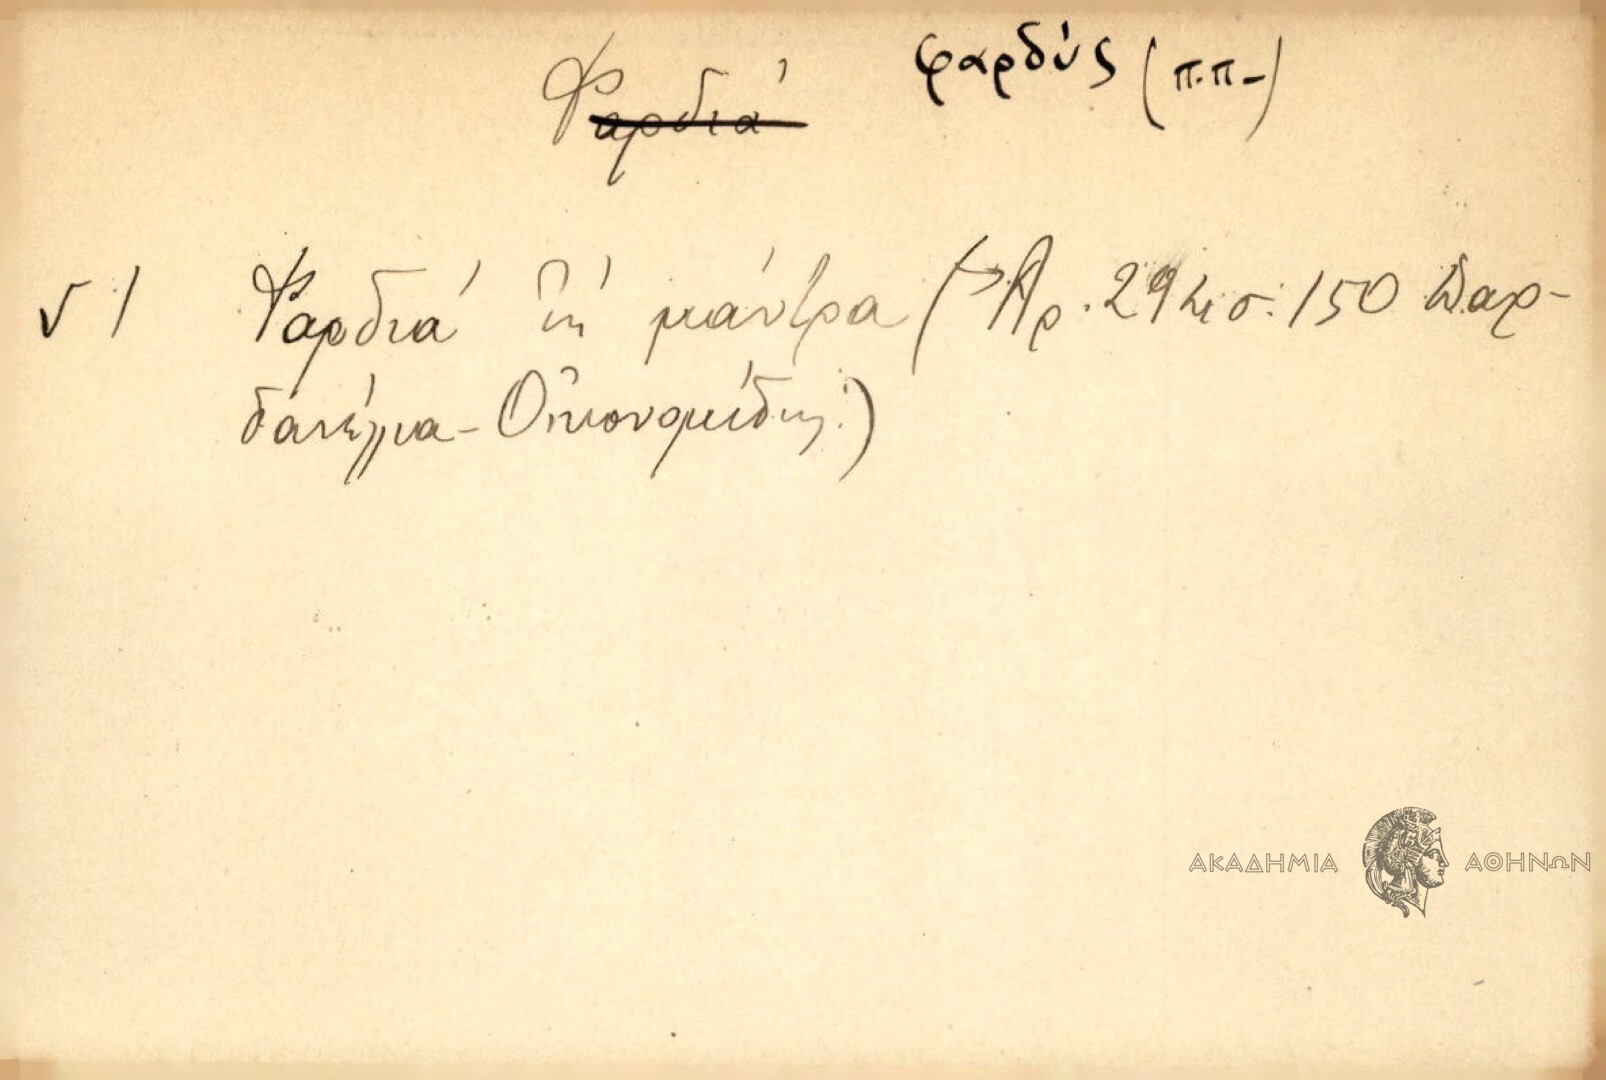 Φαρδιά φαρδύς (π.π-)
√ 1 Φαρδιά ἡ μάντρα (Ἀρ. 29 σ. 150 Δαρ-
δανέλλια - Οἰκονομίδης.)
ΑΚΑΔΗΜΙΑ ΑΘΗΝΩΝ